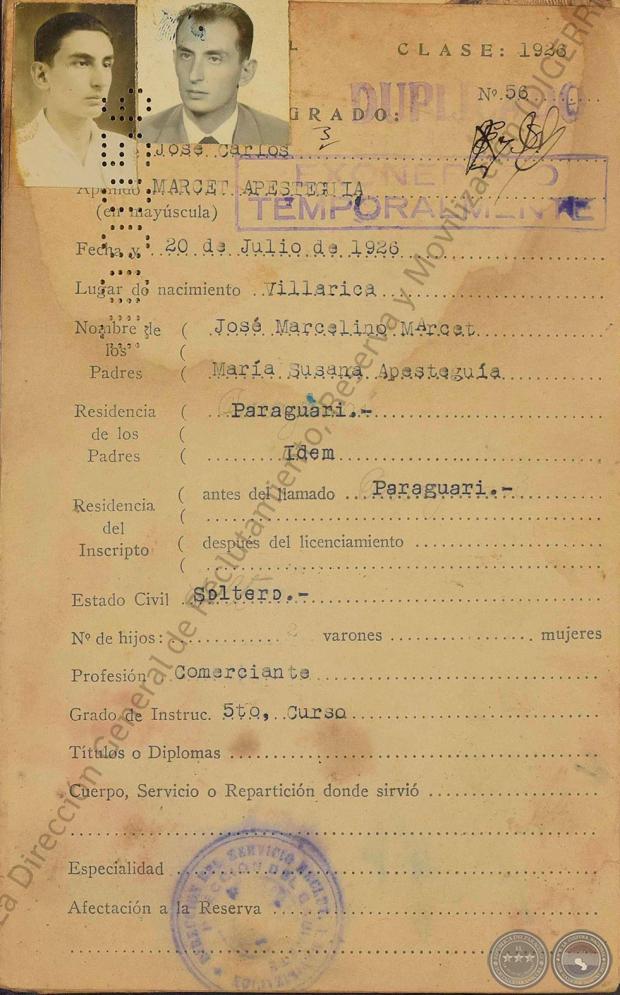 CLASE: 1926
Nº 56
DUPLICADO
GRADO:
José Carlos
EXONERADO
Apellido MARCET APESTEGUIA
TEMPORALMENTE
(en mayúscula)
Fecha y 20 de Julio de 1926
Lugar de nacimiento Villarica
Nombre de ( José Marcelino Marcet
los (
Padres ( María Susana Apesteguía
Residencia ( Paraguari.-
de los (
Padres ( Idem
Residencia ( antes del llamado Paraguari.-
del (
Inscripto ( después del licenciamiento
(
Estado Civil Soltero.-
Nº de hijos: varones mujeres
Profesión Comerciante
Grado de Instruc. 5to, Curso
Títulos o Diplomas
Cuerpo, Servicio o Repartición donde sirvió
Especialidad
Afectación a la Reserva
La Dirección General de Reclutamiento, Reserva y Movilización (DIGERRMOV)